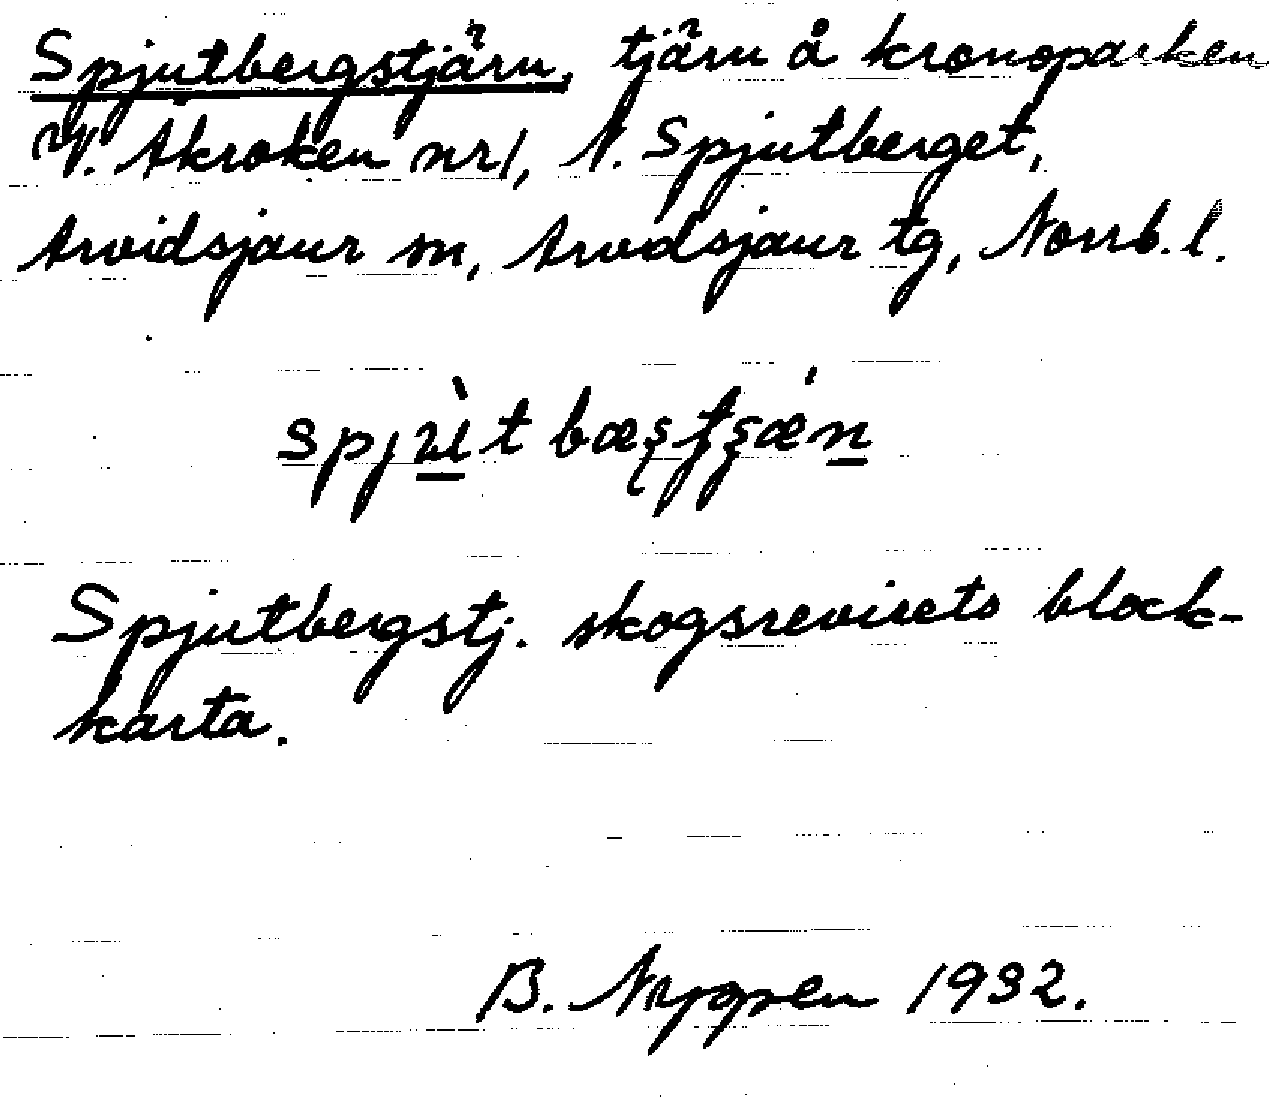 Spjutbergstjärn, tjärn å kronoparken
V. Akroken nr 1, N. Spjutberget,
Arvidsjaur sn, Arvidsjaur tg, Norrb. l.
Spjutbergstj. skogsrevirets block-
karta.
B. Nygren 1932.